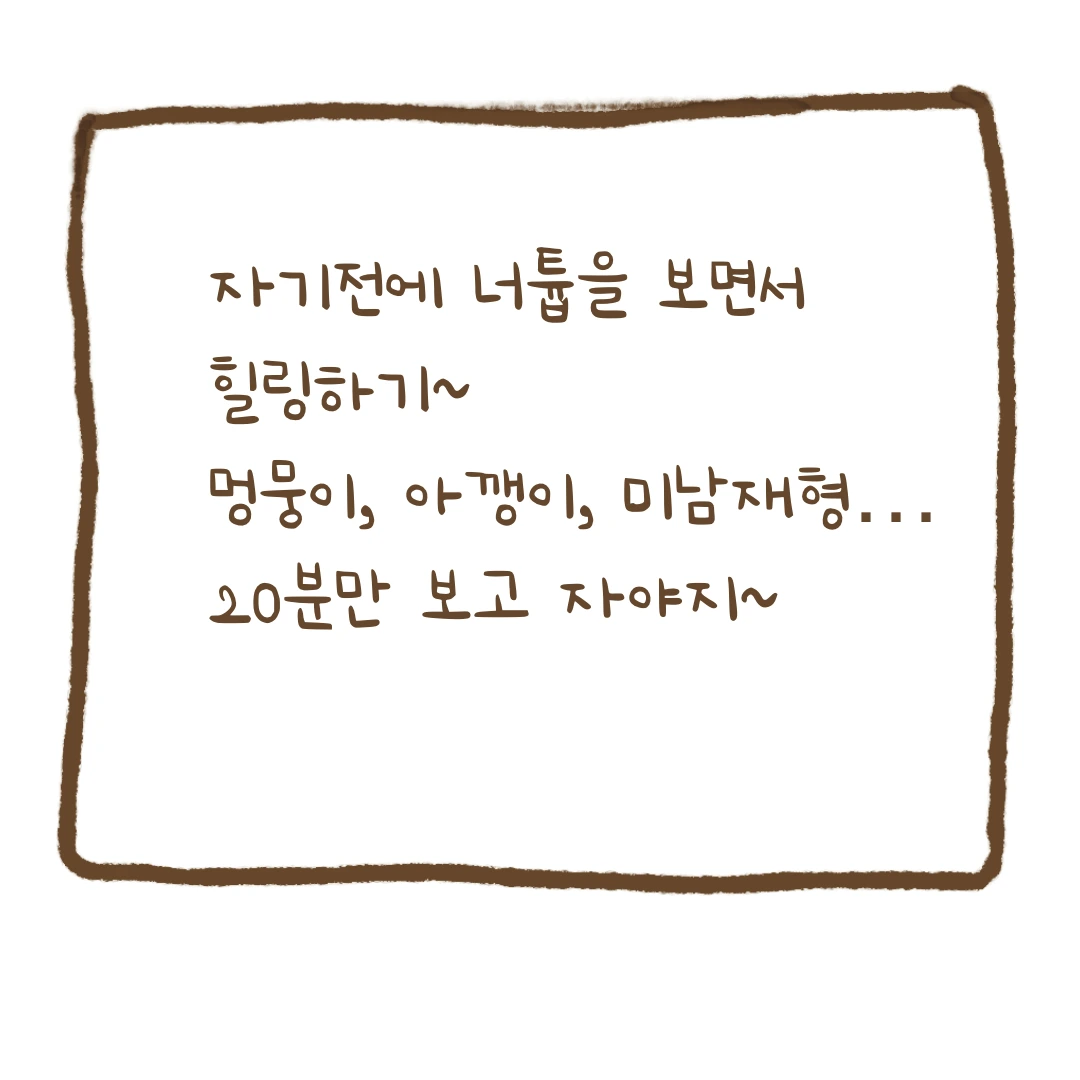 자기전에 너튭을 보면서
힐링하기~
멍뭉이, 아깽이, 미남재형...
20분만 보고 자야지~